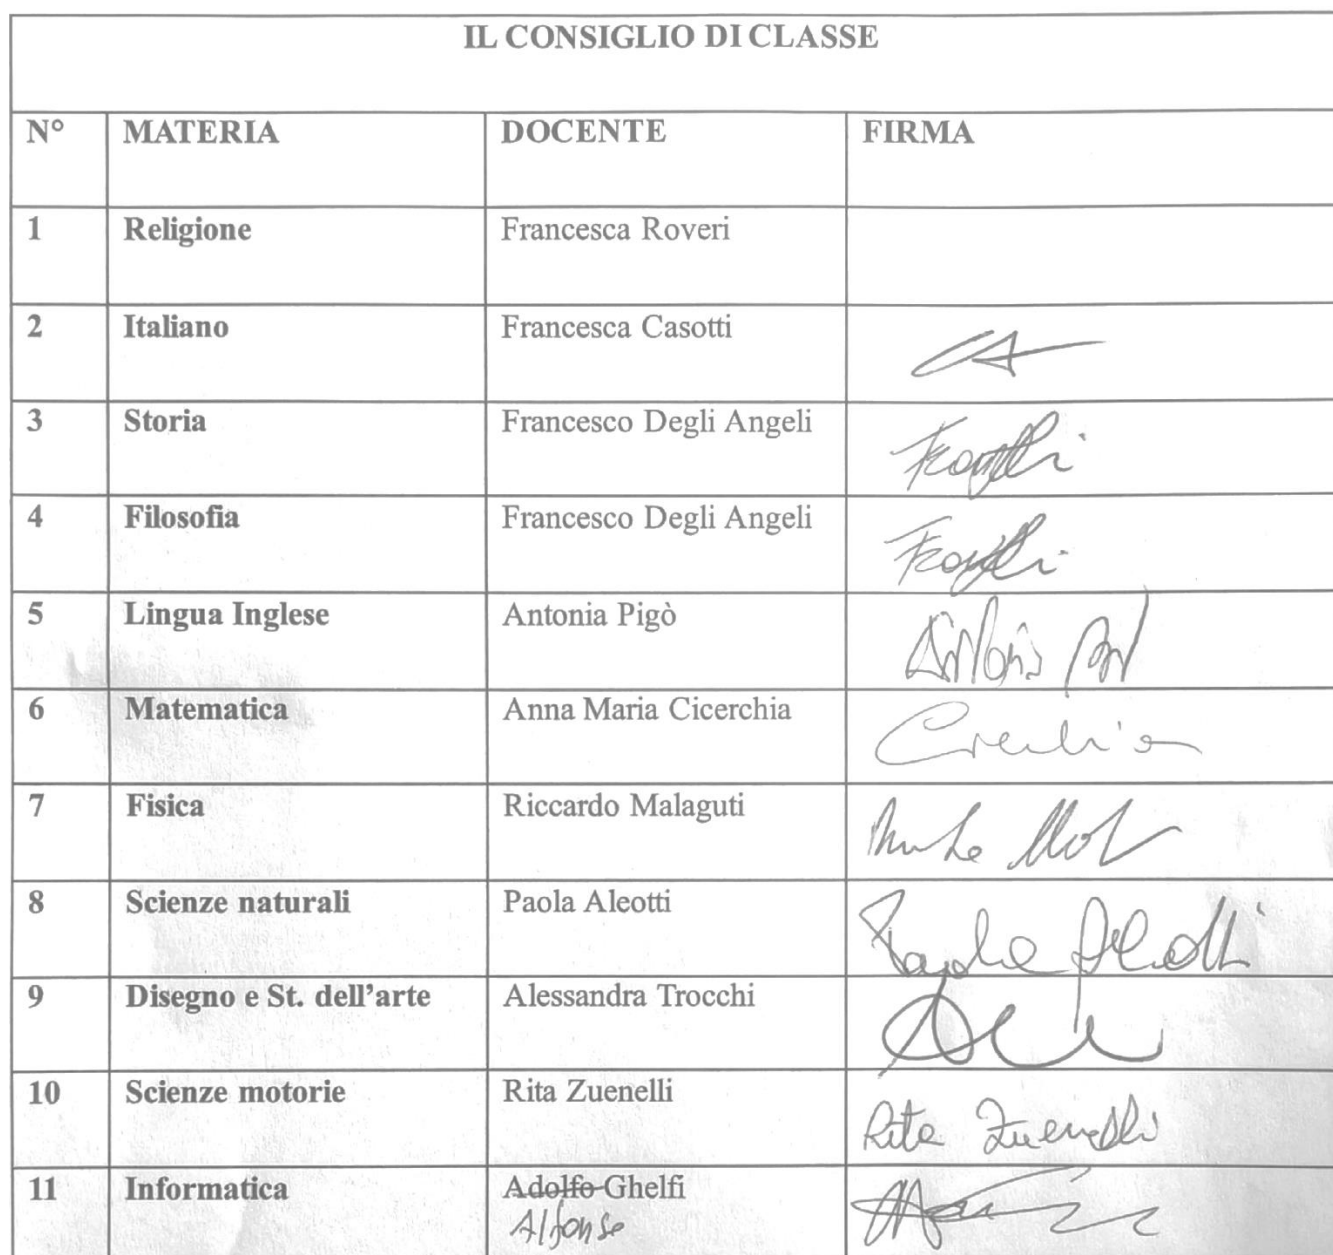 IL CONSIGLIO DI CLASSE
N° MATERIA DOCENTE FIRMA
1 Religione Francesca Roveri
2 Italiano Francesca Casotti
3 Storia Francesco Degli Angeli
4 Filosofia Francesco Degli Angeli
5 Lingua Inglese Antonia Pigò
6 Matematica Anna Maria Cicerchia
7 Fisica Riccardo Malaguti
8 Scienze naturali Paola Aleotti Paola Aleotti
9 Disegno e St. dell'arte Alessandra Trocchi
10 Scienze motorie Rita Zuenelli Rita Zuenelli
11 Informatica Adolfo Ghelfi
Alfonse